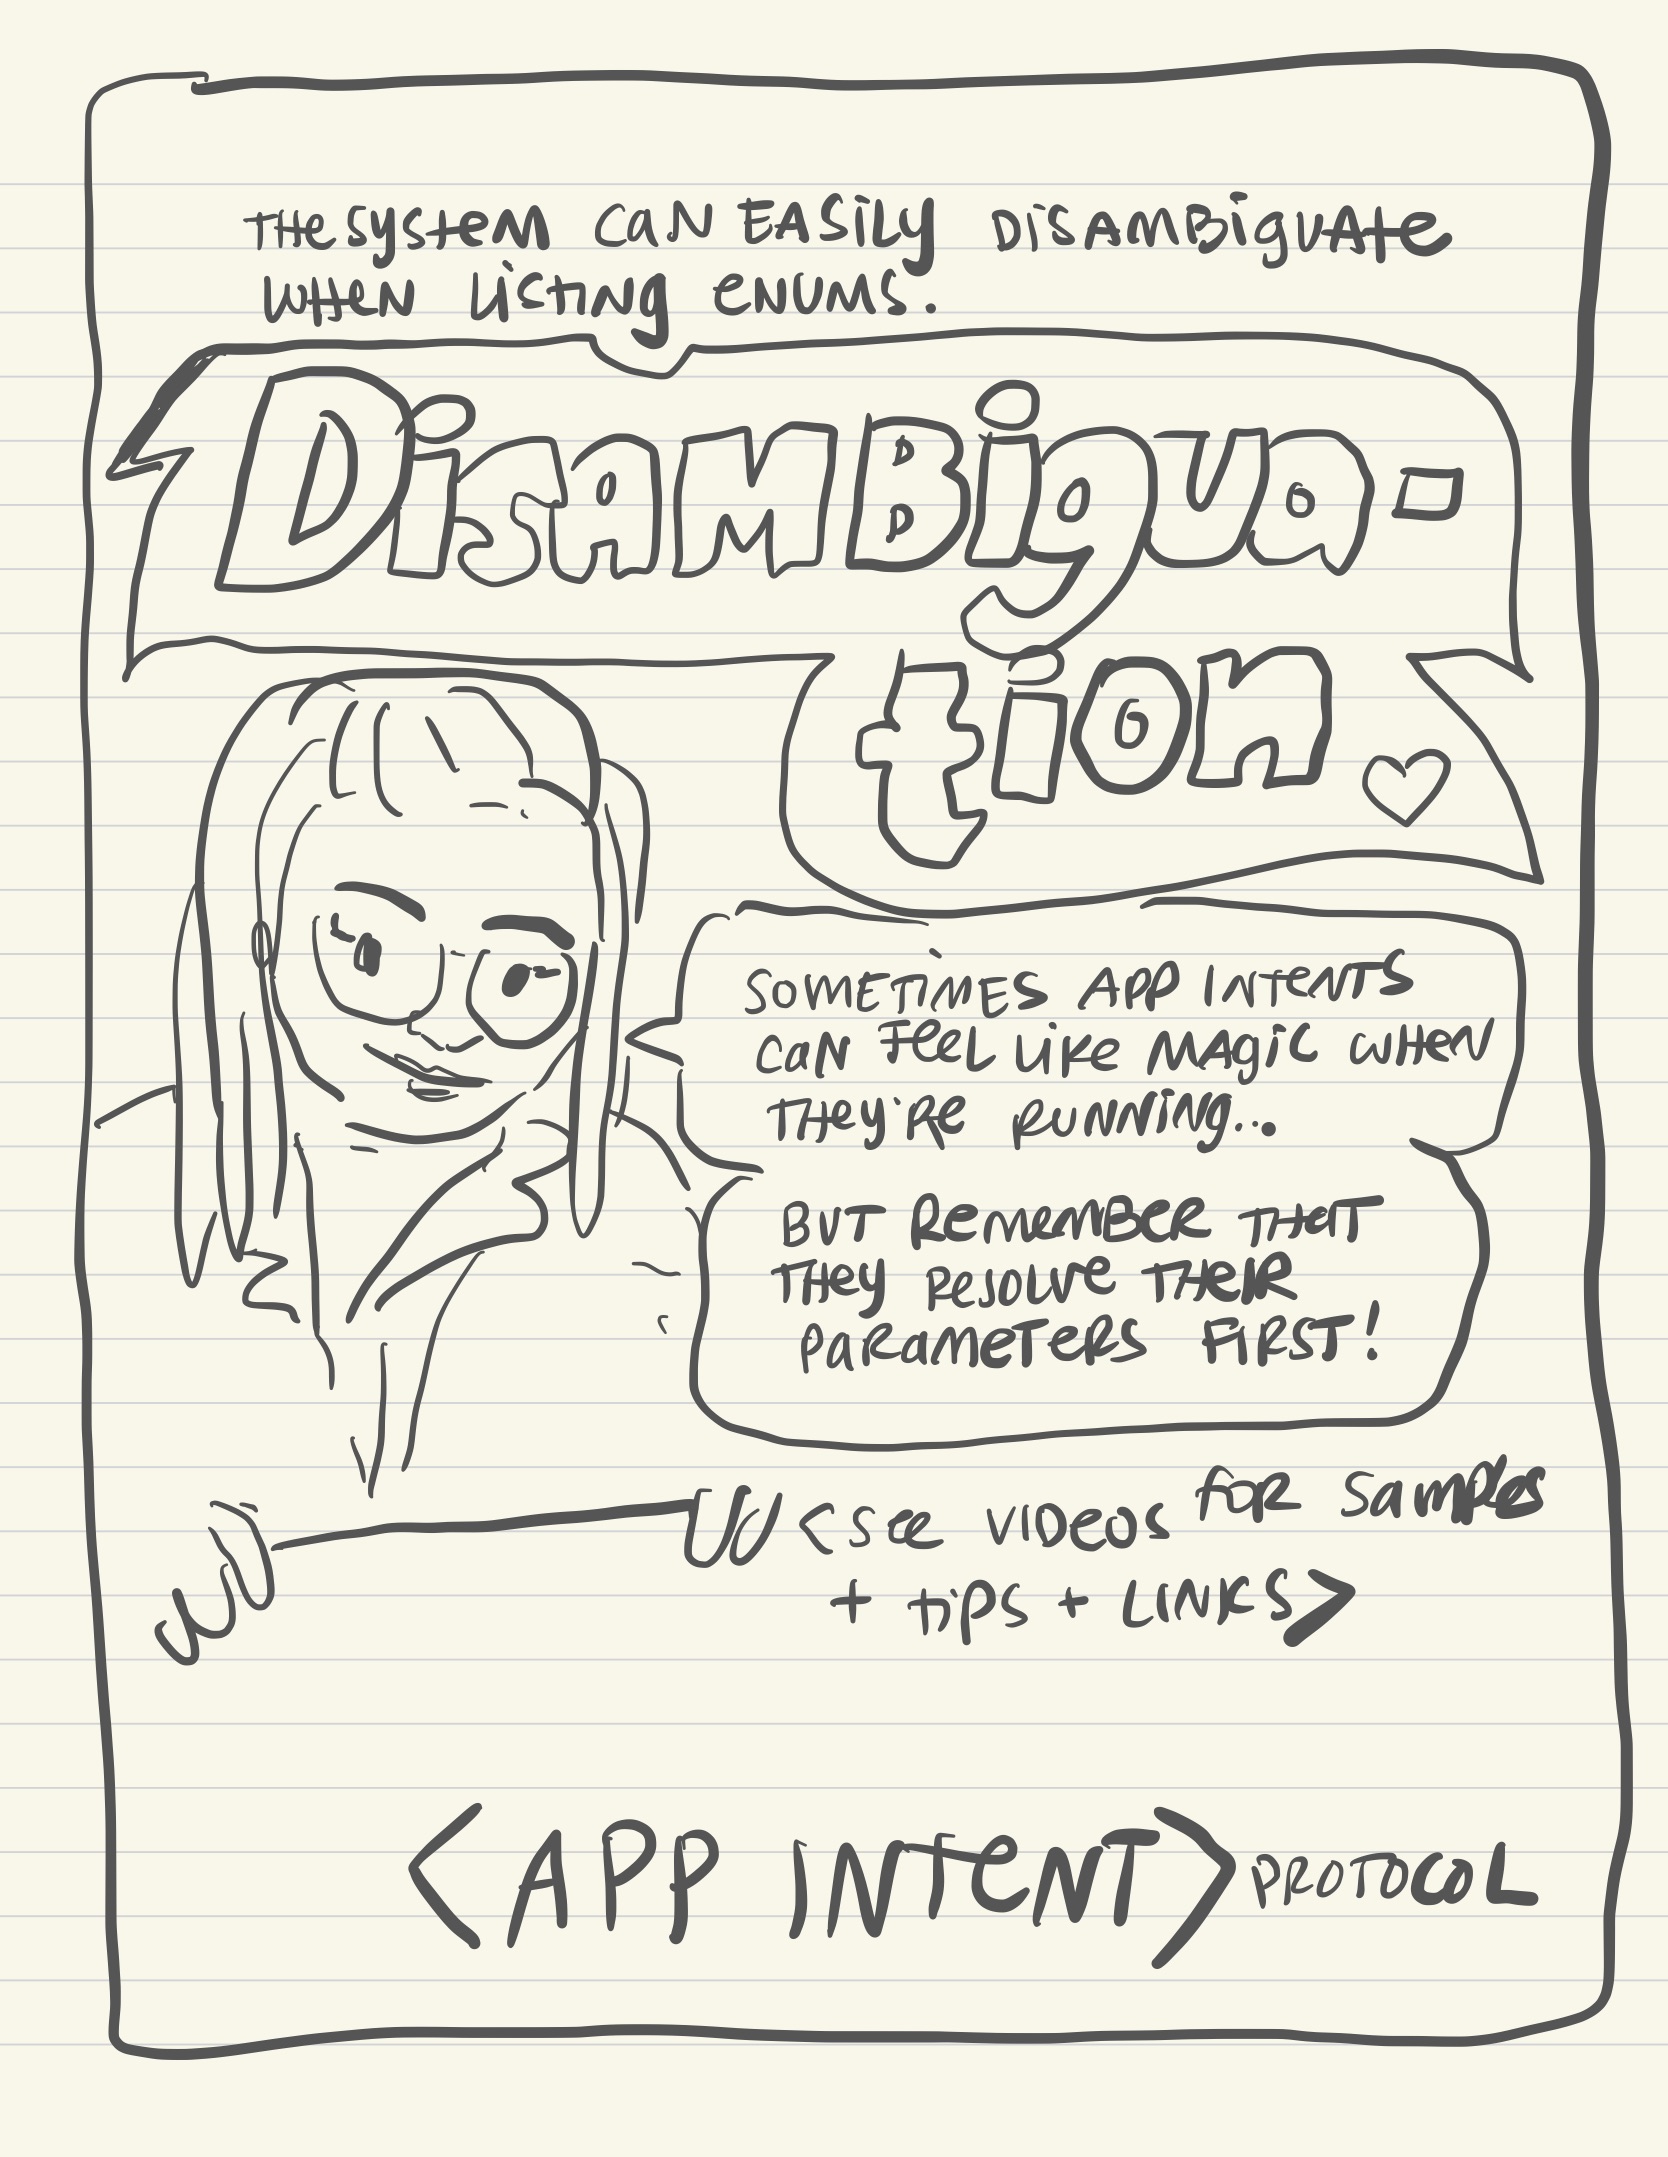 THE SYSTEM CAN EASILY DISAMBIGUATE
WHEN LISTING ENUMS.
DISAMBIGUA-
TION
SOMETIMES APP INTENTS
CAN FEEL LIKE MAGIC WHEN
THEY'RE RUNNING...
BUT REMEMBER THAT
THEY RESOLVE THEIR
PARAMETERS FIRST!
<SEE VIDEOS FOR SAMPLES
+ TIPS + LINKS>
<APP INTENT> PROTOCOL